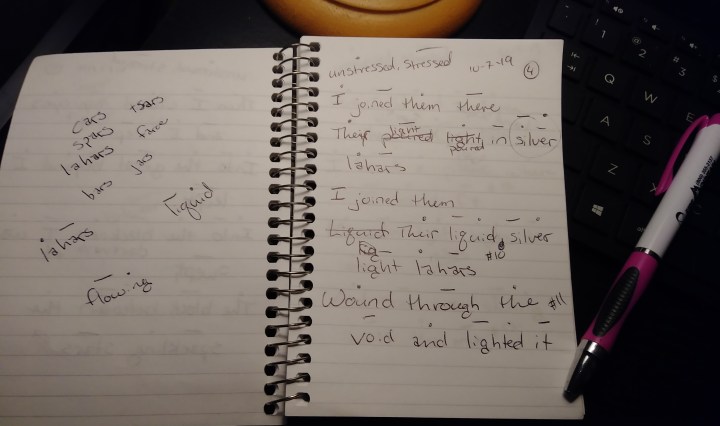 cars tsars
spars face
lahars
bars jars
liquid
lahars
flowing
unstressed, stressed 10-7-19 4
I joined them there
light light
Their poured poured in silver
lahars
I joined them
Liquid Their liquid, silver
#10
light lahars
Wound through the #11
void and lighted it